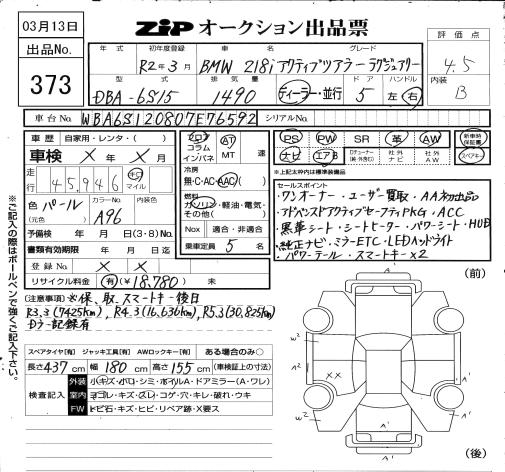 03月13日
ZIP オークション出品票
出品No.
373
年式 初年度登録 車名 グレード
R2年3月 BMW 218i アクティブツアラー ラグジュアリー
型式 排気量 ドア ハンドル
DBA-6S15 1490 ディーラー・並行 5 左・右
評価点
4.5
内装
B
車台No. WBA6S120807E76592 シリアルNo.
車歴 自家用・レンタ・( )
車検 × 年 × 月
走行 45,946 キロ マイル
色 パール カラーNo. 内装色
(元色) A96
予備検 年 月 日(3・8)No.
書類有効期限 年 月 日迄
登録No. × ×
リサイクル料金 有(¥18,780) 未
フロア コラム インパネ AT MT 速
冷房
無・C・AC・AAC( )
燃料
ガソリン・軽油・電気・その他( )
Nox 適合・非適合
乗車定員 5 名
PS PW SR 革 AW 新車時保証書
ナビ エアB 社外ナビ 社外AW スペアキー
※上記太枠内は標準装備品
セールスポイント
・ワンオーナー・ユーザー買取・AA初出品
・アドバンストアクティブセーフティPKG・ACC
・黒革シート・シートヒーター・パワーシート・HUD
・純正ナビ・ミラーETC・LEDヘッドライト
・パワーテール・スマートキー×2
注意事項 ※保、取、スマートキー後日
R3.3(7425km)、R4.3(16,636km)、R5.3(30,825km)
Dラー記録有
スペアタイヤ【有】 ジャッキ工具【有】 AWロックキー【有】 ある場合のみ○
長さ 437 cm 幅 180 cm 高さ 155 cm (車検証上の寸法)
検査記入
外装 小キズ・小凹・シミ・ホイルA・ドアミラー(A・ワレ)
室内 ヨゴレ・キズ・スレ・コゲ・穴・キレ・破れ・ウキ
FW トビ石・キズ・ヒビ・リペア跡・X要ス
※ご記入の際はボールペンで強くご記入下さい。
(前)
W2
W2
A2
××
A'
A'
A'
W2
(後)